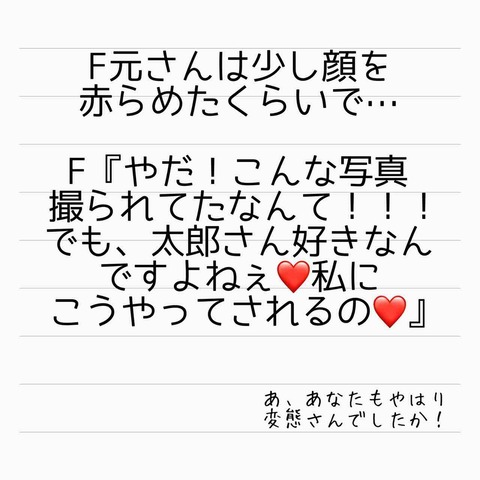 F元さんは少し顔を
赤らめたくらいで…
F『やだ！こんな写真
撮られてたなんて！！！
でも、太郎さん好きなん
ですよねぇ❤️私に
こうやってされるの❤️』
あ、あなたもやはり
変態さんでしたか！